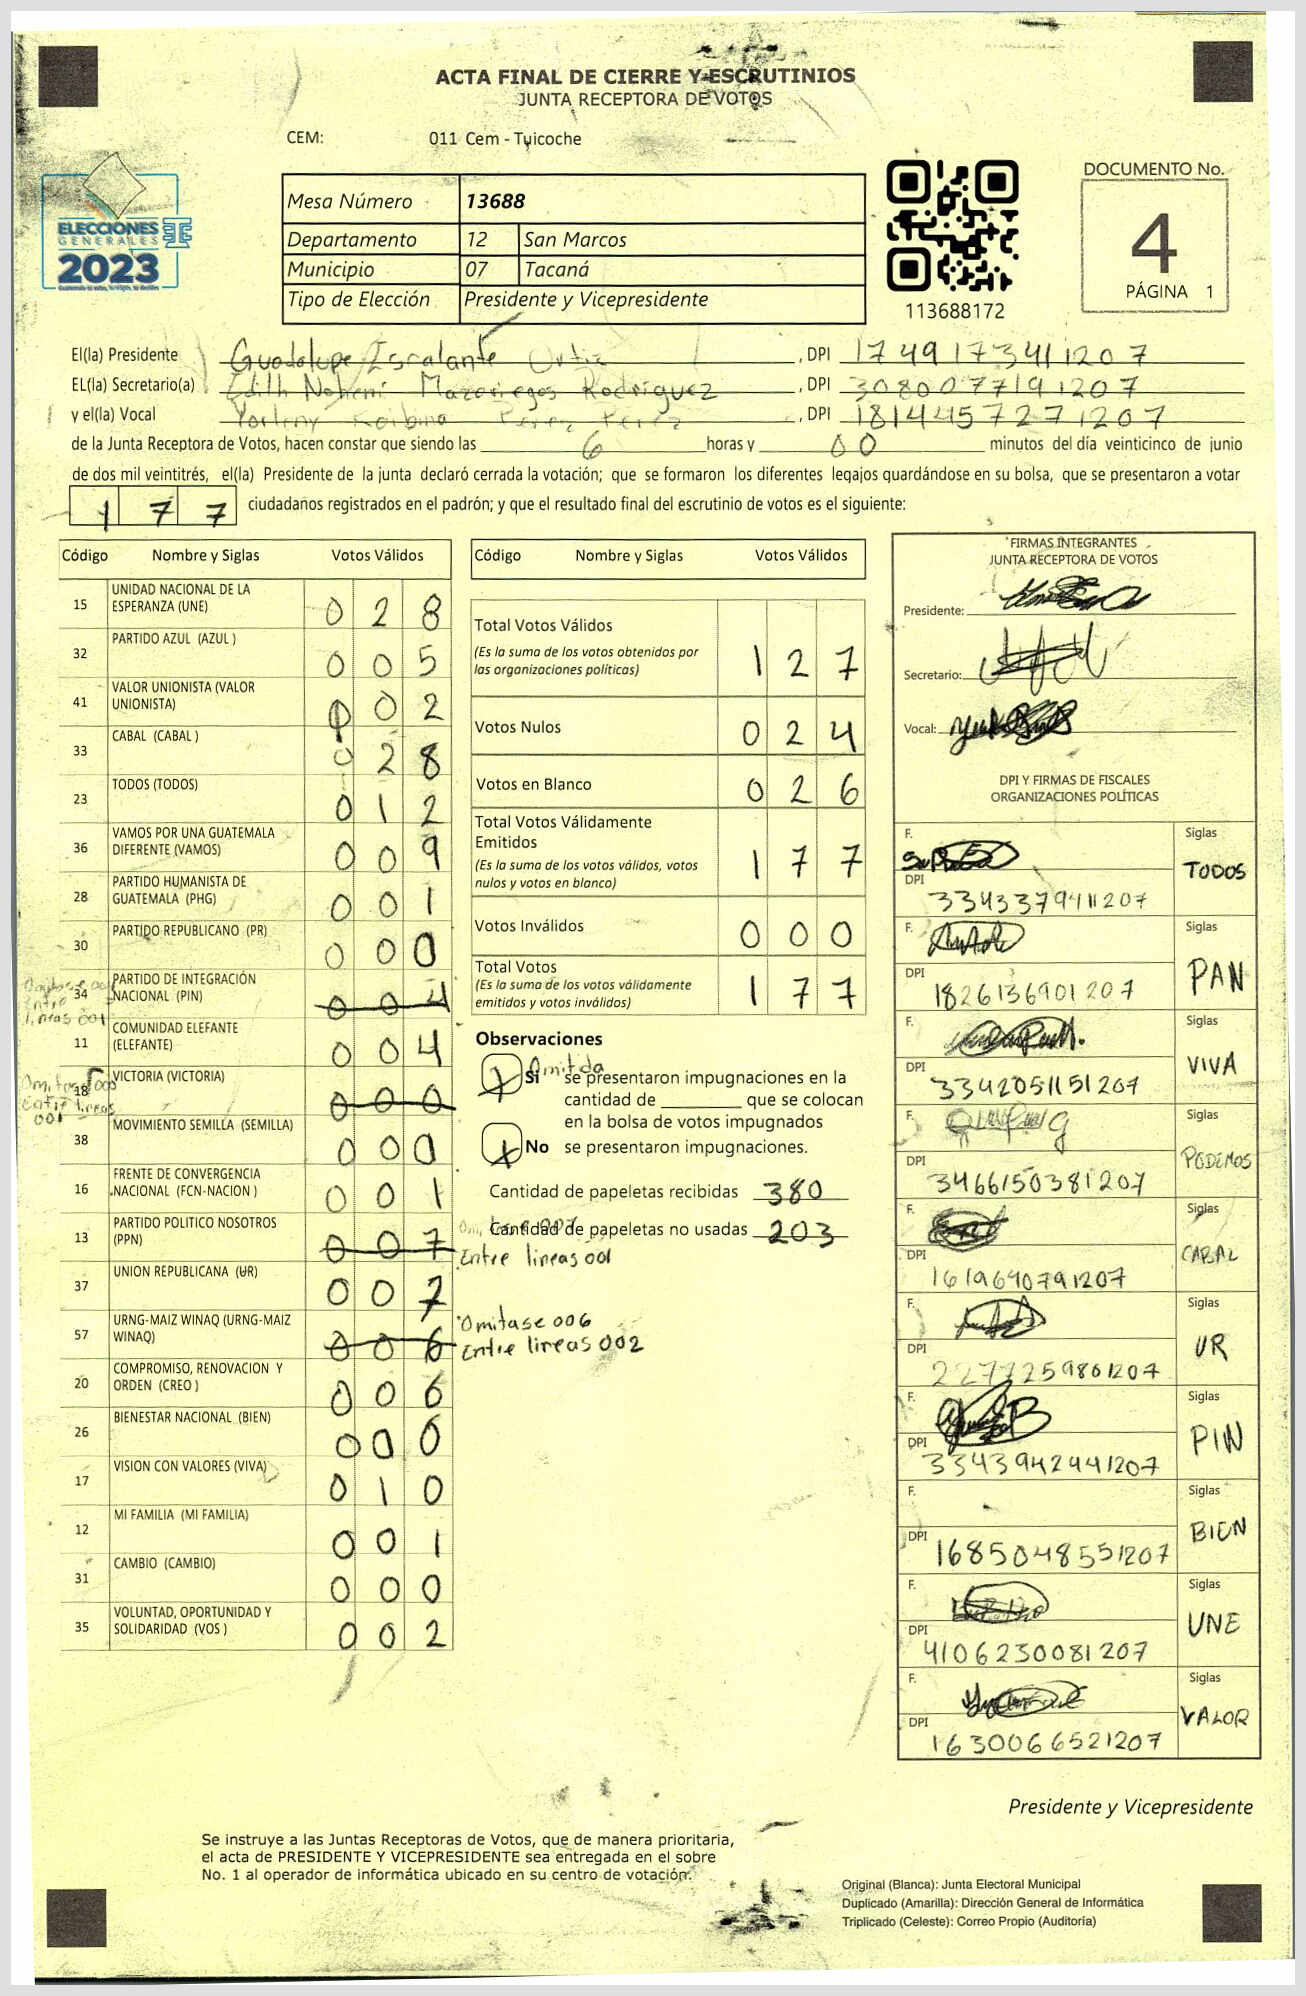 ACTA FINAL DE CIERRE Y ESCRUTINIOS
JUNTA RECEPTORA DE VOTOS
CEM: 011 Cem - Tuicoche
ELECCIONES
GENERALES
2023
Mesa Número 13688
Departamento 12 San Marcos
Municipio 07 Tacaná
Tipo de Elección Presidente y Vicepresidente
113688172
DOCUMENTO No.
4
PÁGINA 1
El(la) Presidente Guadalupe Escalante Ortiz, DPI 1749173411207
EL(la) Secretario(a) Edith Nohemi Mazariegos Rodriguez, DPI 3080077191207
y el(la) Vocal Perez Perez, DPI 1814457271207
de la Junta Receptora de Votos, hacen constar que siendo las 6 horas y 00 minutos del día veinticinco de junio
de dos mil veintitrés, el(la) Presidente de la junta declaró cerrada la votación; que se formaron los diferentes legajos guardándose en su bolsa, que se presentaron a votar
177 ciudadanos registrados en el padrón; y que el resultado final del escrutinio de votos es el siguiente:
Código Nombre y Siglas Votos Válidos
15 UNIDAD NACIONAL DE LA ESPERANZA (UNE) 028
32 PARTIDO AZUL (AZUL ) 005
41 VALOR UNIONISTA (VALOR UNIONISTA) 002
33 CABAL (CABAL ) 028
23 TODOS (TODOS) 012
36 VAMOS POR UNA GUATEMALA DIFERENTE (VAMOS) 009
28 PARTIDO HUMANISTA DE GUATEMALA (PHG) 001
30 PARTIDO REPUBLICANO (PR) 000
Omitase 004
Entre
lineas 001
34 PARTIDO DE INTEGRACIÓN NACIONAL (PIN) 004
11 COMUNIDAD ELEFANTE (ELEFANTE) 004
Omitase 000
Entre lineas
001
18 VICTORIA (VICTORIA) 000
38 MOVIMIENTO SEMILLA (SEMILLA) 000
16 FRENTE DE CONVERGENCIA NACIONAL (FCN-NACION ) 001
13 PARTIDO POLITICO NOSOTROS (PPN) 007
37 UNION REPUBLICANA (UR) 007
57 URNG-MAIZ WINAQ (URNG-MAIZ WINAQ) 006
20 COMPROMISO, RENOVACION Y ORDEN (CREO ) 006
26 BIENESTAR NACIONAL (BIEN) 000
17 VISION CON VALORES (VIVA) 010
12 MI FAMILIA (MI FAMILIA) 001
31 CAMBIO (CAMBIO) 000
35 VOLUNTAD, OPORTUNIDAD Y SOLIDARIDAD (VOS ) 002
Código Nombre y Siglas Votos Válidos
Total Votos Válidos 127
(Es la suma de los votos obtenidos por
las organizaciones políticas)
Votos Nulos 024
Votos en Blanco 026
Total Votos Válidamente
Emitidos 177
(Es la suma de los votos válidos, votos
nulos y votos en blanco)
Votos Inválidos 000
Total Votos 177
(Es la suma de los votos válidamente
emitidos y votos inválidos)
Observaciones
Omitda
Si se presentaron impugnaciones en la
cantidad de ________ que se colocan
en la bolsa de votos impugnados
No se presentaron impugnaciones.
Cantidad de papeletas recibidas 380
Cantidad de papeletas no usadas 203
Omitase 007
Entre lineas 001
Omitase 006
Entre lineas 002
FIRMAS INTEGRANTES
JUNTA RECEPTORA DE VOTOS
Presidente:
Secretario:
Vocal:
DPI Y FIRMAS DE FISCALES
ORGANIZACIONES POLÍTICAS
F. Siglas
TODOS
DPI 3343379411207
F. Siglas
PAN
DPI 1826136901207
F. Siglas
VIVA
DPI 3342051151207
F. Siglas
PODEMOS
DPI 3466150381207
F. Siglas
CABAL
DPI 1619640791207
F. Siglas
UR
DPI 2277259801207
F. Siglas
PIN
DPI 3343942441207
F. Siglas
BIEN
DPI 1685048551207
F. Siglas
UNE
DPI 4106230081207
F. Siglas
VALOR
DPI 1630066521207
Presidente y Vicepresidente
Se instruye a las Juntas Receptoras de Votos, que de manera prioritaria,
el acta de PRESIDENTE Y VICEPRESIDENTE sea entregada en el sobre
No. 1 al operador de informática ubicado en su centro de votación.
Original (Blanca): Junta Electoral Municipal
Duplicado (Amarilla): Dirección General de Informática
Triplicado (Celeste): Correo Propio (Auditoría)